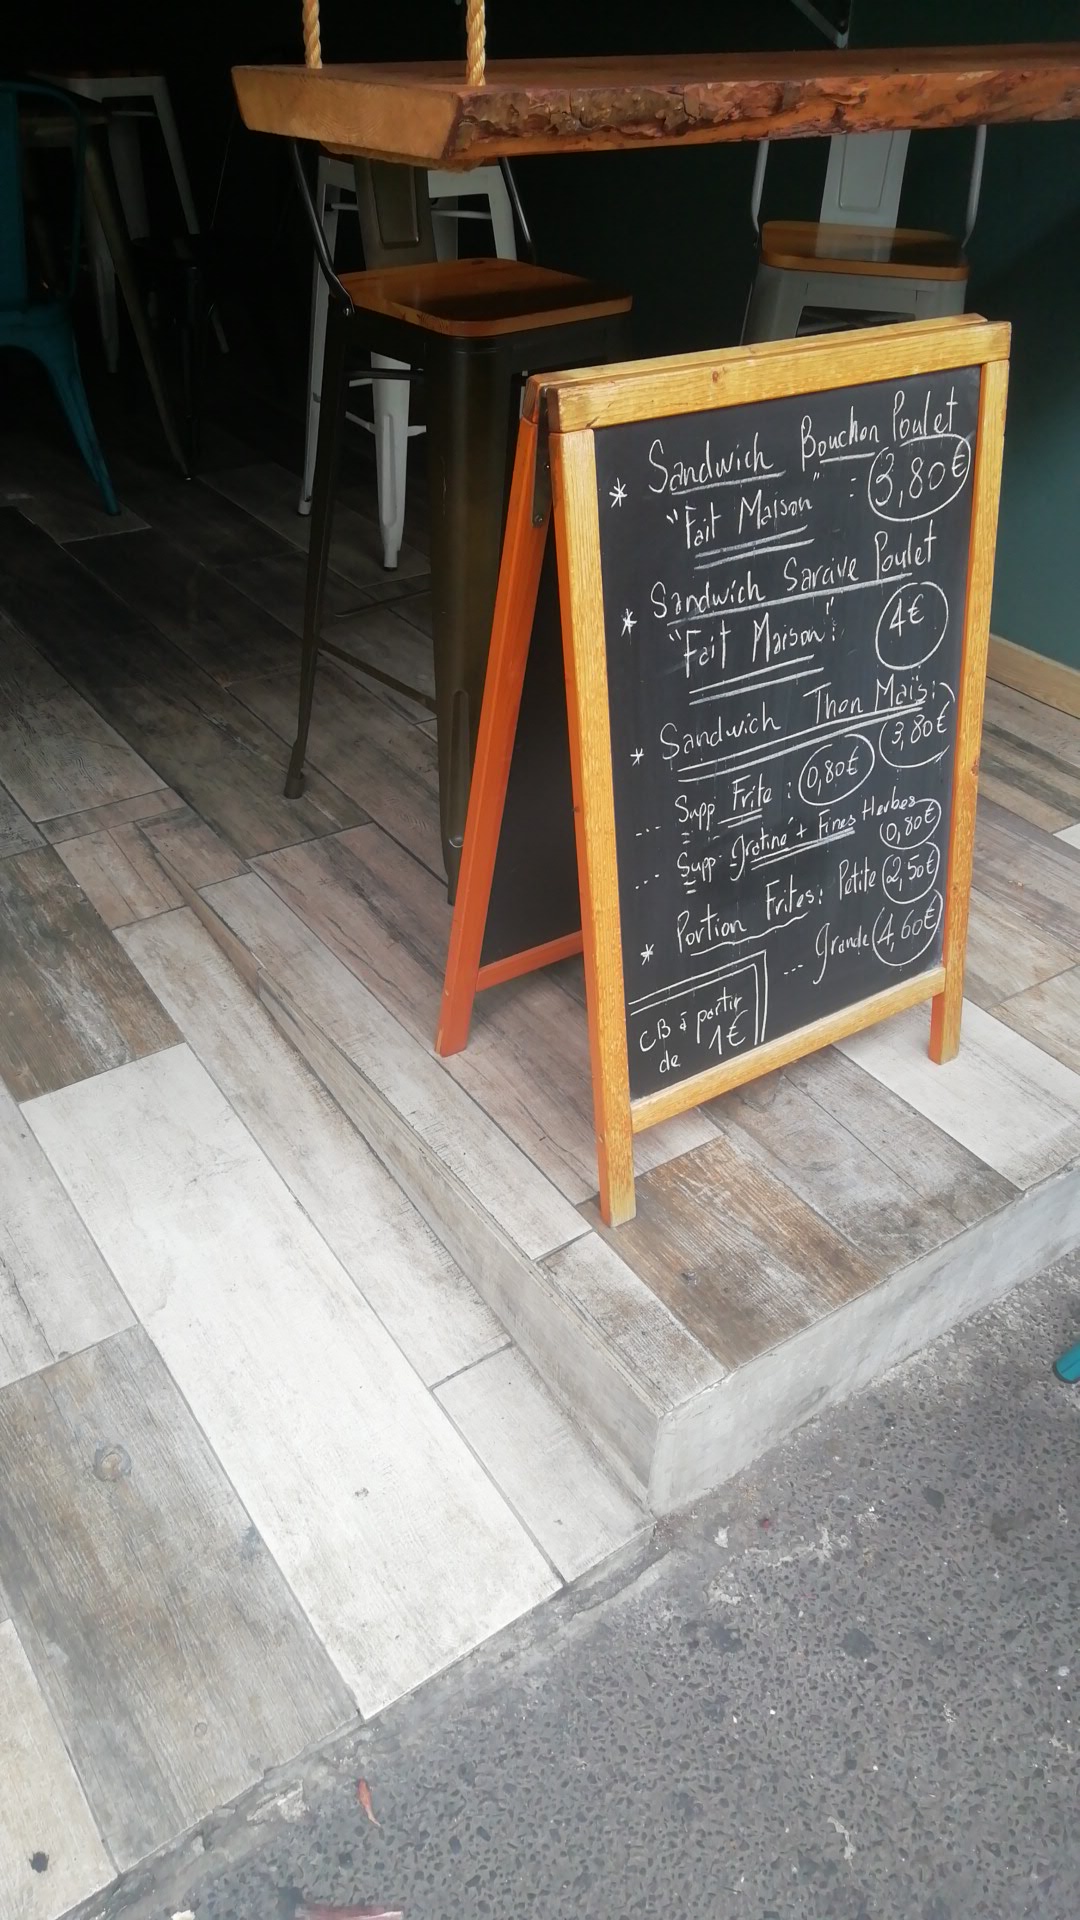 * Sandwich Bouchon Poulet
"Fait Maison" : 3,80€
* Sandwich Sarcive Poulet
"Fait Maison": 4€
* Sandwich Thon Maïs:
3,80€
--- Supp Frite : 0,80€
--- Supp gratiné + Fines Herbes
0,80€
* Portion Frites: Petite 2,50€
--- grande 4,60€
CB à partir
de 1€